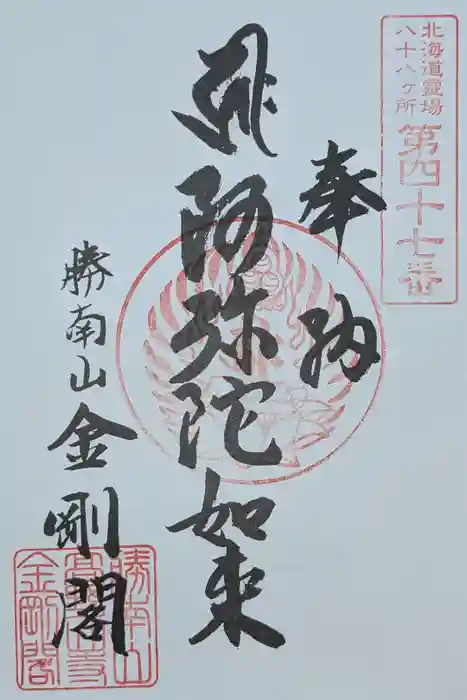 北海道霊場
八十八ヶ所
第四十七番
奉納
阿弥陀如来
勝南山
金剛閣
勝南山
高野山寺
金剛閣